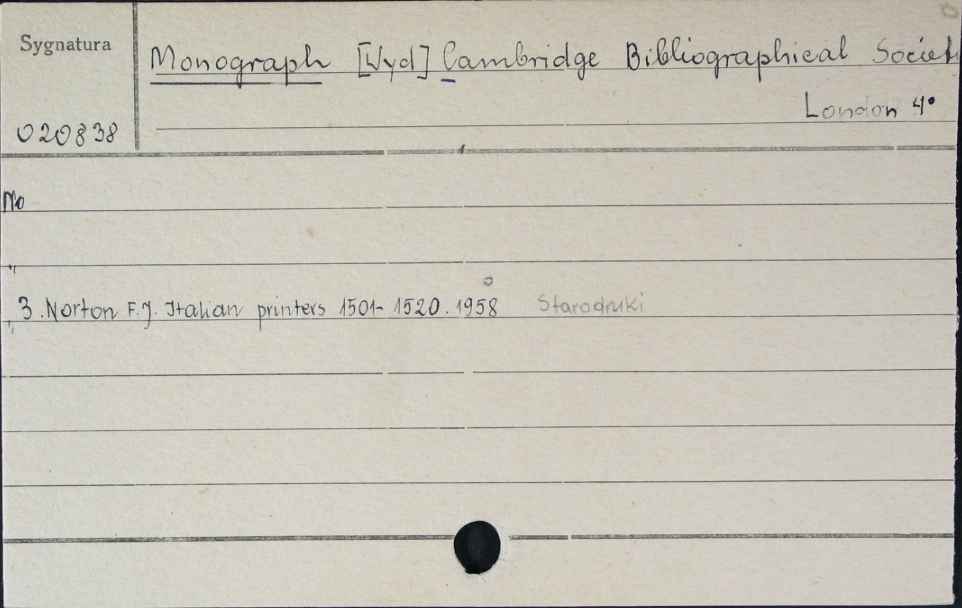 Sygnatura
Monograph [Wyd] Cambridge Bibliographical Societ
London 4°
020838
No
"
3. Norton F.J. Italian printers 1501-1520. 1958 Starodruki
"